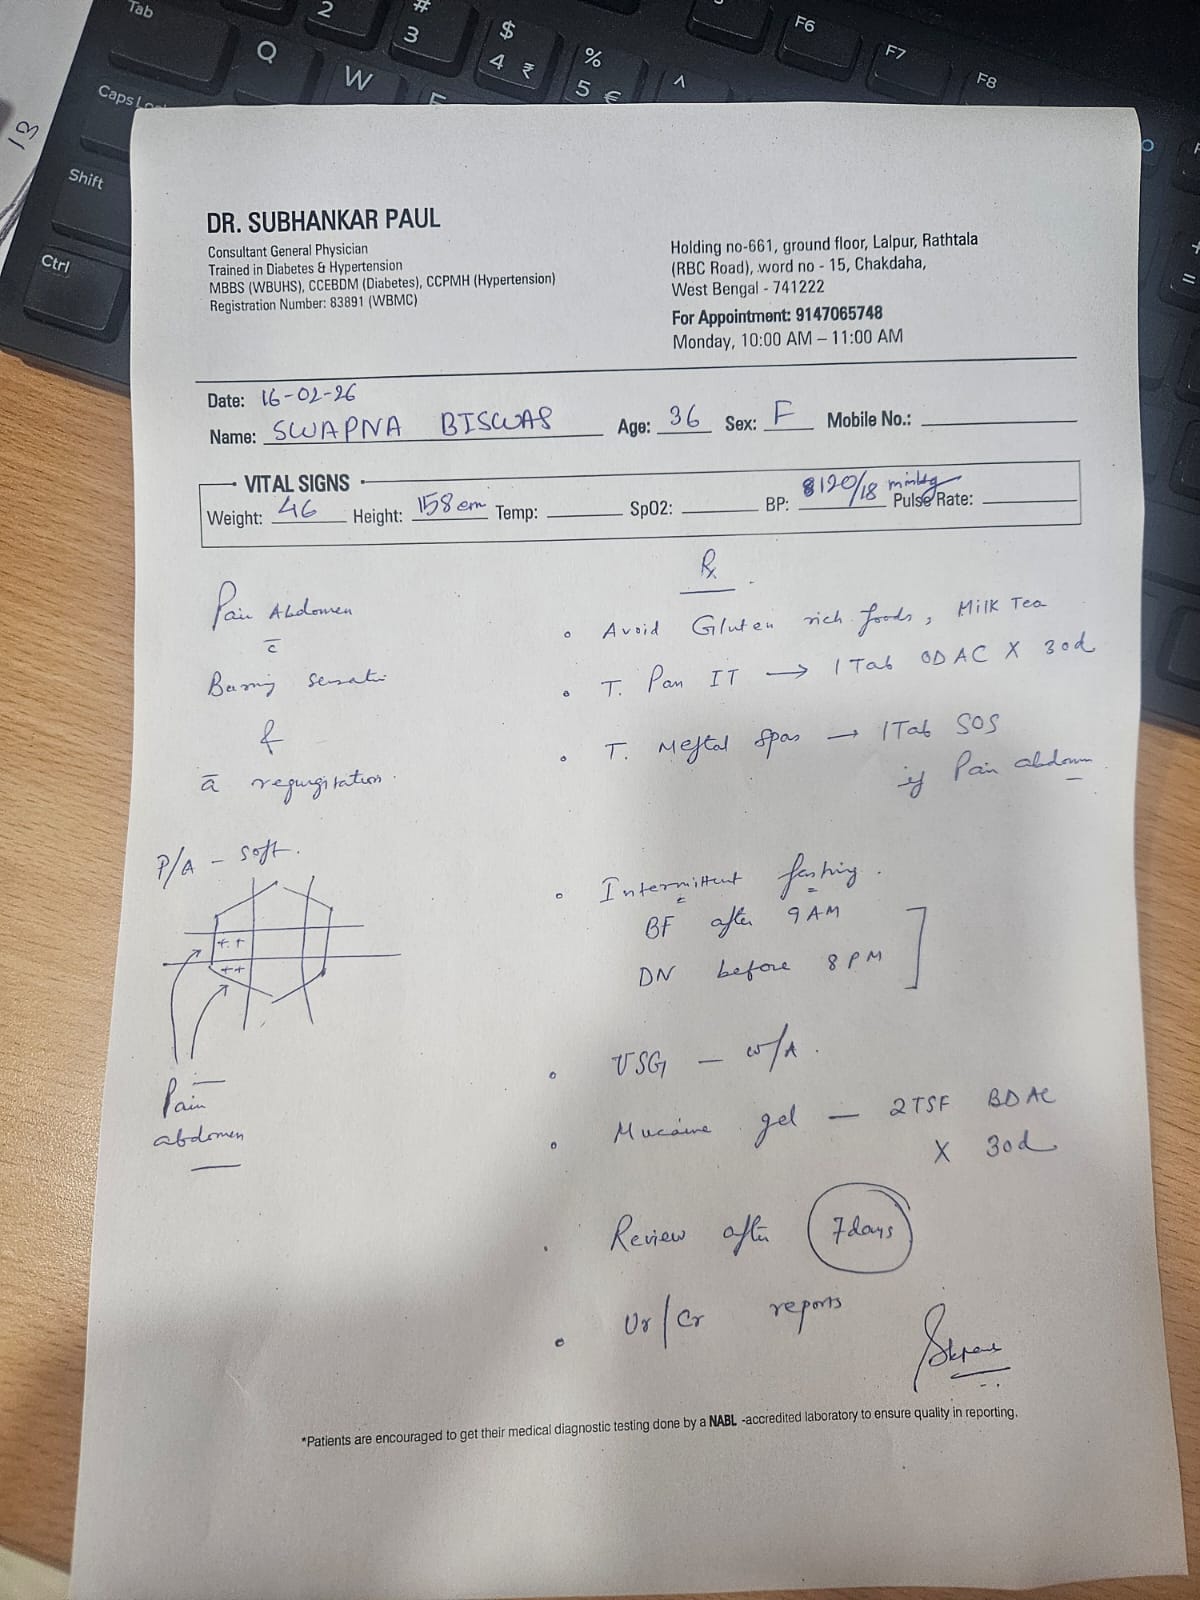 Tab
2
#
3
$
4 ₹
%
5 €
^
F6
F7
F8
Q
W
Caps Lo
Shift
Ctrl
13
DR. SUBHANKAR PAUL
Consultant General Physician
Trained in Diabetes & Hypertension
MBBS (WBUHS), CCEBDM (Diabetes), CCPMH (Hypertension)
Registration Number: 83891 (WBMC)
Holding no-661, ground floor, Lalpur, Rathtala
(RBC Road), word no - 15, Chakdaha,
West Bengal - 741222
For Appointment: 9147065748
Monday, 10:00 AM – 11:00 AM
Date: 16-02-26
Name: SWAPNA BISWAS Age: 36 Sex: F Mobile No.:
VITAL SIGNS
Weight: 46 Height: 158 cm Temp: SpO2: BP: 120/18 mmHg Pulse Rate:
Pain Abdomen
c̄
Burning sensatn
&
ā regurgitation.
P/A - soft.
+ +
++
Pain
abdomen
Rx
Avoid Gluten rich foods, Milk Tea
T. Pan IT → 1 Tab OD AC X 30d
T. Meftal spas → 1 Tab SOS
if Pain abdomen
Intermittent fasting.
BF after 9 AM
DN before 8 PM
USG - w/A.
Mucaine gel - 2TSF BD AC
X 30d
Review after 7 days
Ur/Cr reports
*Patients are encouraged to get their medical diagnostic testing done by a NABL -accredited laboratory to ensure quality in reporting.